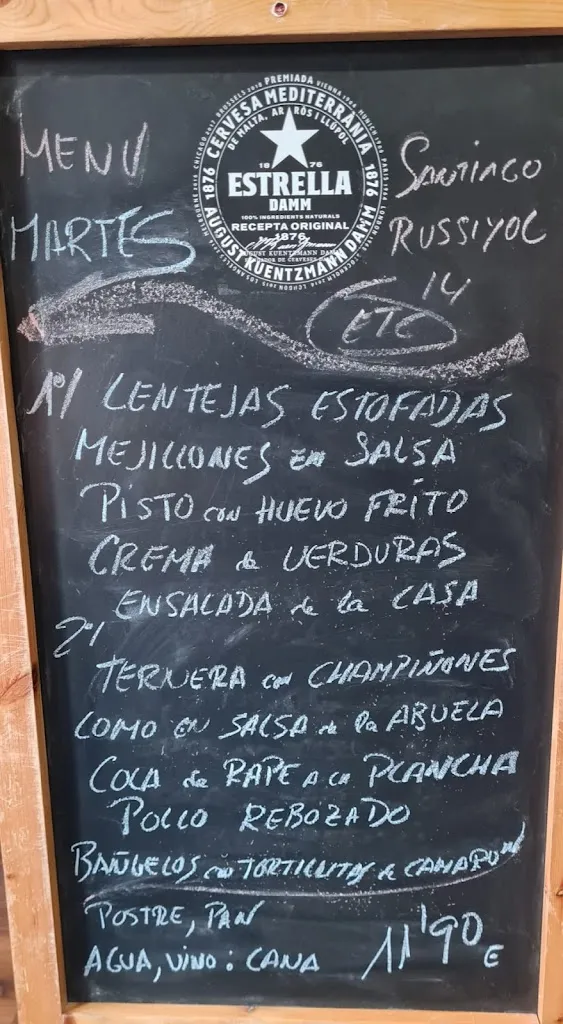 PREMIADA
CERVESA MEDITERRÀNIA
DE MALTA, ARRÒS I LLÚPOL
1876
1876
1876
ESTRELLA
DAMM
100% INGREDIENTS NATURALS
RECEPTA ORIGINAL
1876
AUGUST KUENTZMANN DAMM
MENU
MARTES
SANTIAGO
RUSSIYOL
14
ETC
1º/ LENTEJAS ESTOFADAS
MEJILLONES EN SALSA
PISTO con HUEVO FRITO
CREMA de VERDURAS
ENSALADA de la CASA
2º/
TERNERA con CHAMPIÑONES
LOMO EN SALSA de la ABUELA
COLA de RAPE A LA PLANCHA
POLLO REBOZADO
BAÑGELOS con TORTILLITAS de CAMARON
POSTRE, PAN
AGUA, VINO : CANA
11'90 E